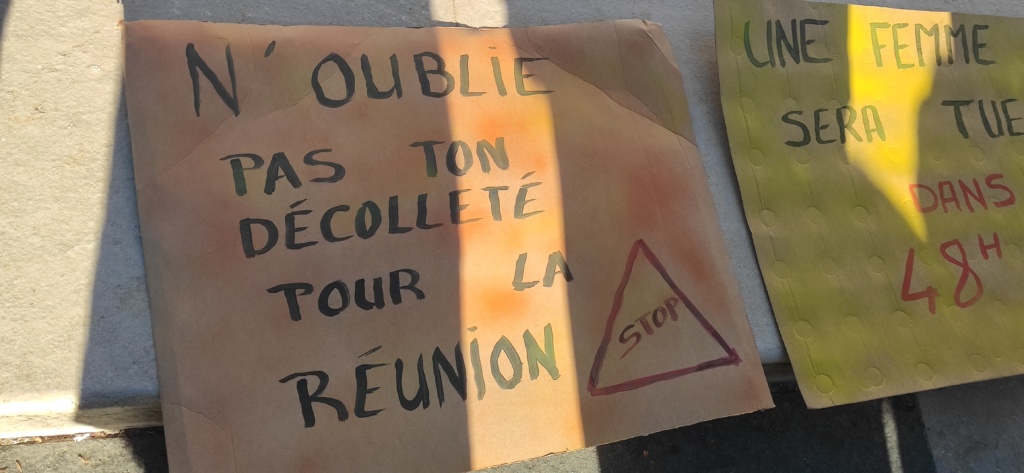 N'OUBLIE
PAS TON
DÉCOLLETÉ
POUR LA
RÉUNION
STOP
UNE FEMME
SERA TUE
DANS
48H